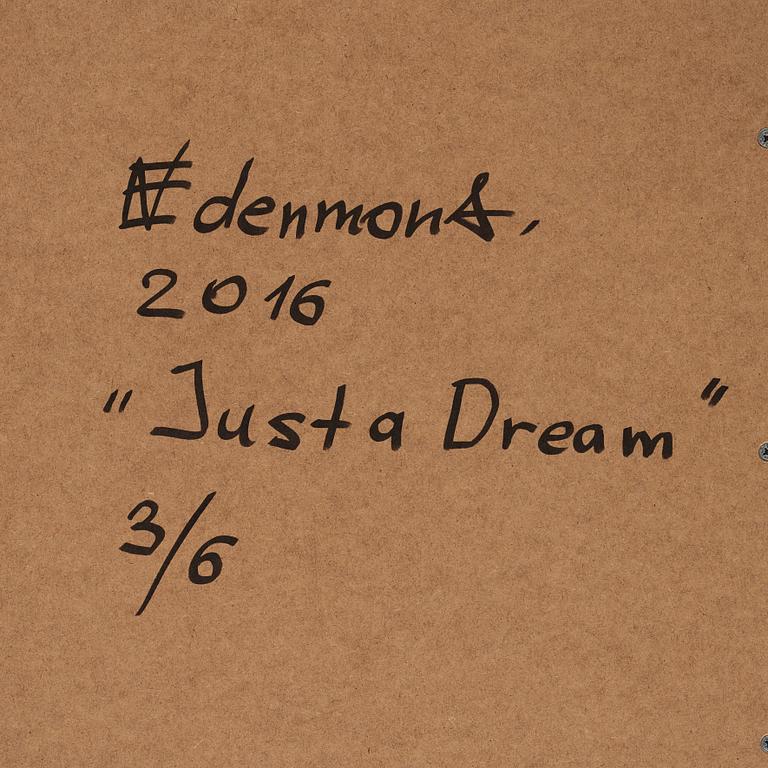 Edenmont,
2016
"Just a Dream"
3/6